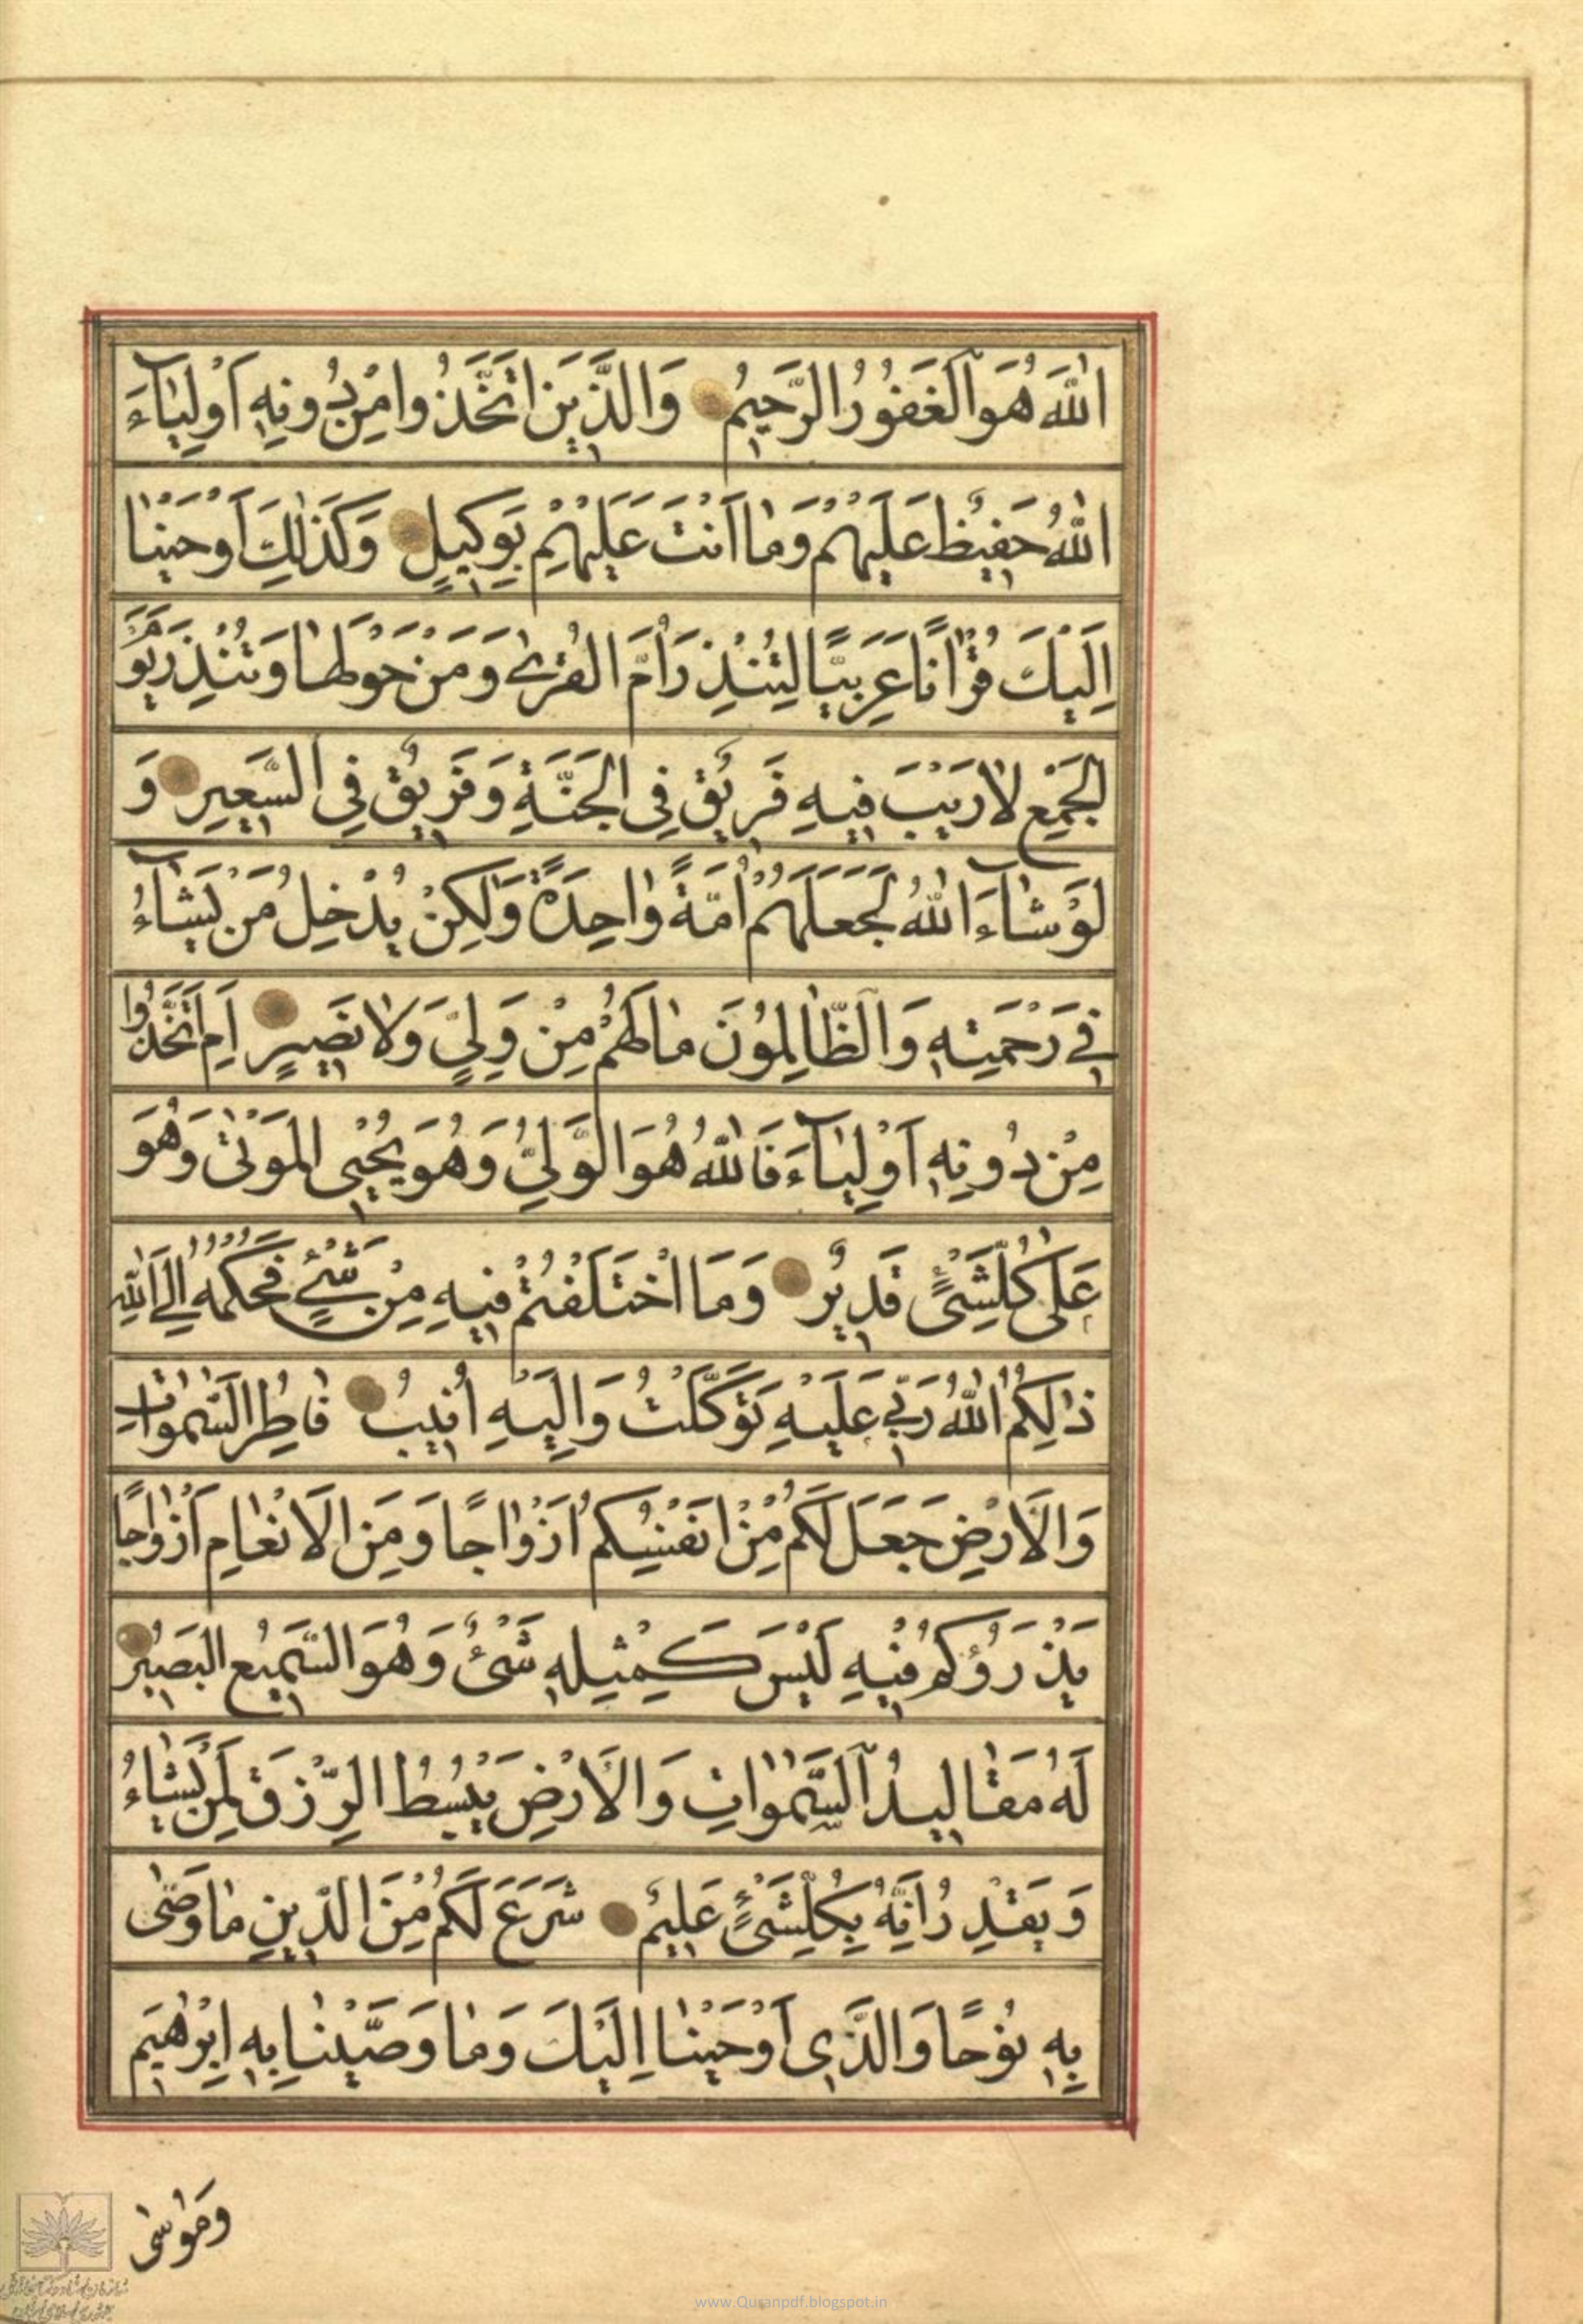 اللهَ هُوَ الْغَفُورُ الرَّحِيمُ وَالَّذِينَ اتَّخَذُوا مِنْ دُونِهِ أَوْلِيَاءَ
اللهُ حَفِيظٌ عَلَيْهِمْ وَمَا أَنْتَ عَلَيْهِمْ بِوَكِيلٍ وَكَذَلِكَ أَوْحَيْنَا
إِلَيْكَ قُرْآنًا عَرَبِيًّا لِتُنْذِرَ أُمَّ الْقُرَى وَمَنْ حَوْلَهَا وَتُنْذِرَ يَوْمَ
الْجَمْعِ لَا رَيْبَ فِيهِ فَرِيقٌ فِي الْجَنَّةِ وَفَرِيقٌ فِي السَّعِيرِ وَ
لَوْ شَاءَ اللهُ لَجَعَلَهُمْ أُمَّةً وَاحِدَةً وَلَكِنْ يُدْخِلُ مَنْ يَشَاءُ
فِي رَحْمَتِهِ وَالظَّالِمُونَ مَا لَهُمْ مِنْ وَلِيٍّ وَلَا نَصِيرٍ أَمِ اتَّخَذُوا
مِنْ دُونِهِ أَوْلِيَاءَ فَاللهُ هُوَ الْوَلِيُّ وَهُوَ يُحْيِي الْمَوْتَى وَهُوَ
عَلَى كُلِّ شَيْءٍ قَدِيرٌ وَمَا اخْتَلَفْتُمْ فِيهِ مِنْ شَيْءٍ فَحُكْمُهُ إِلَى اللهِ
ذَلِكُمُ اللهُ رَبِّي عَلَيْهِ تَوَكَّلْتُ وَإِلَيْهِ أُنِيبُ فَاطِرُ السَّمَوَاتِ
وَالْأَرْضِ جَعَلَ لَكُمْ مِنْ أَنْفُسِكُمْ أَزْوَاجًا وَمِنَ الْأَنْعَامِ أَزْوَاجًا
يَذْرَؤُكُمْ فِيهِ لَيْسَ كَمِثْلِهِ شَيْءٌ وَهُوَ السَّمِيعُ الْبَصِيرُ
لَهُ مَقَالِيدُ السَّمَوَاتِ وَالْأَرْضِ يَبْسُطُ الرِّزْقَ لِمَنْ يَشَاءُ
وَيَقْدِرُ إِنَّهُ بِكُلِّ شَيْءٍ عَلِيمٌ شَرَعَ لَكُمْ مِنَ الدِّينِ مَا وَصَّى
بِهِ نُوحًا وَالَّذِي أَوْحَيْنَا إِلَيْكَ وَمَا وَصَّيْنَا بِهِ إِبْرَهِيمَ
وَمُوسَى
www.Quranpdf.blogspot.in